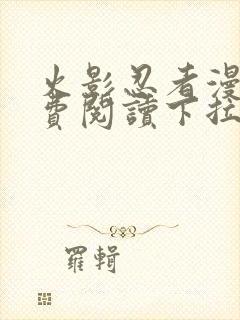 火影忍者漫
費閱讀下拉
羅輯